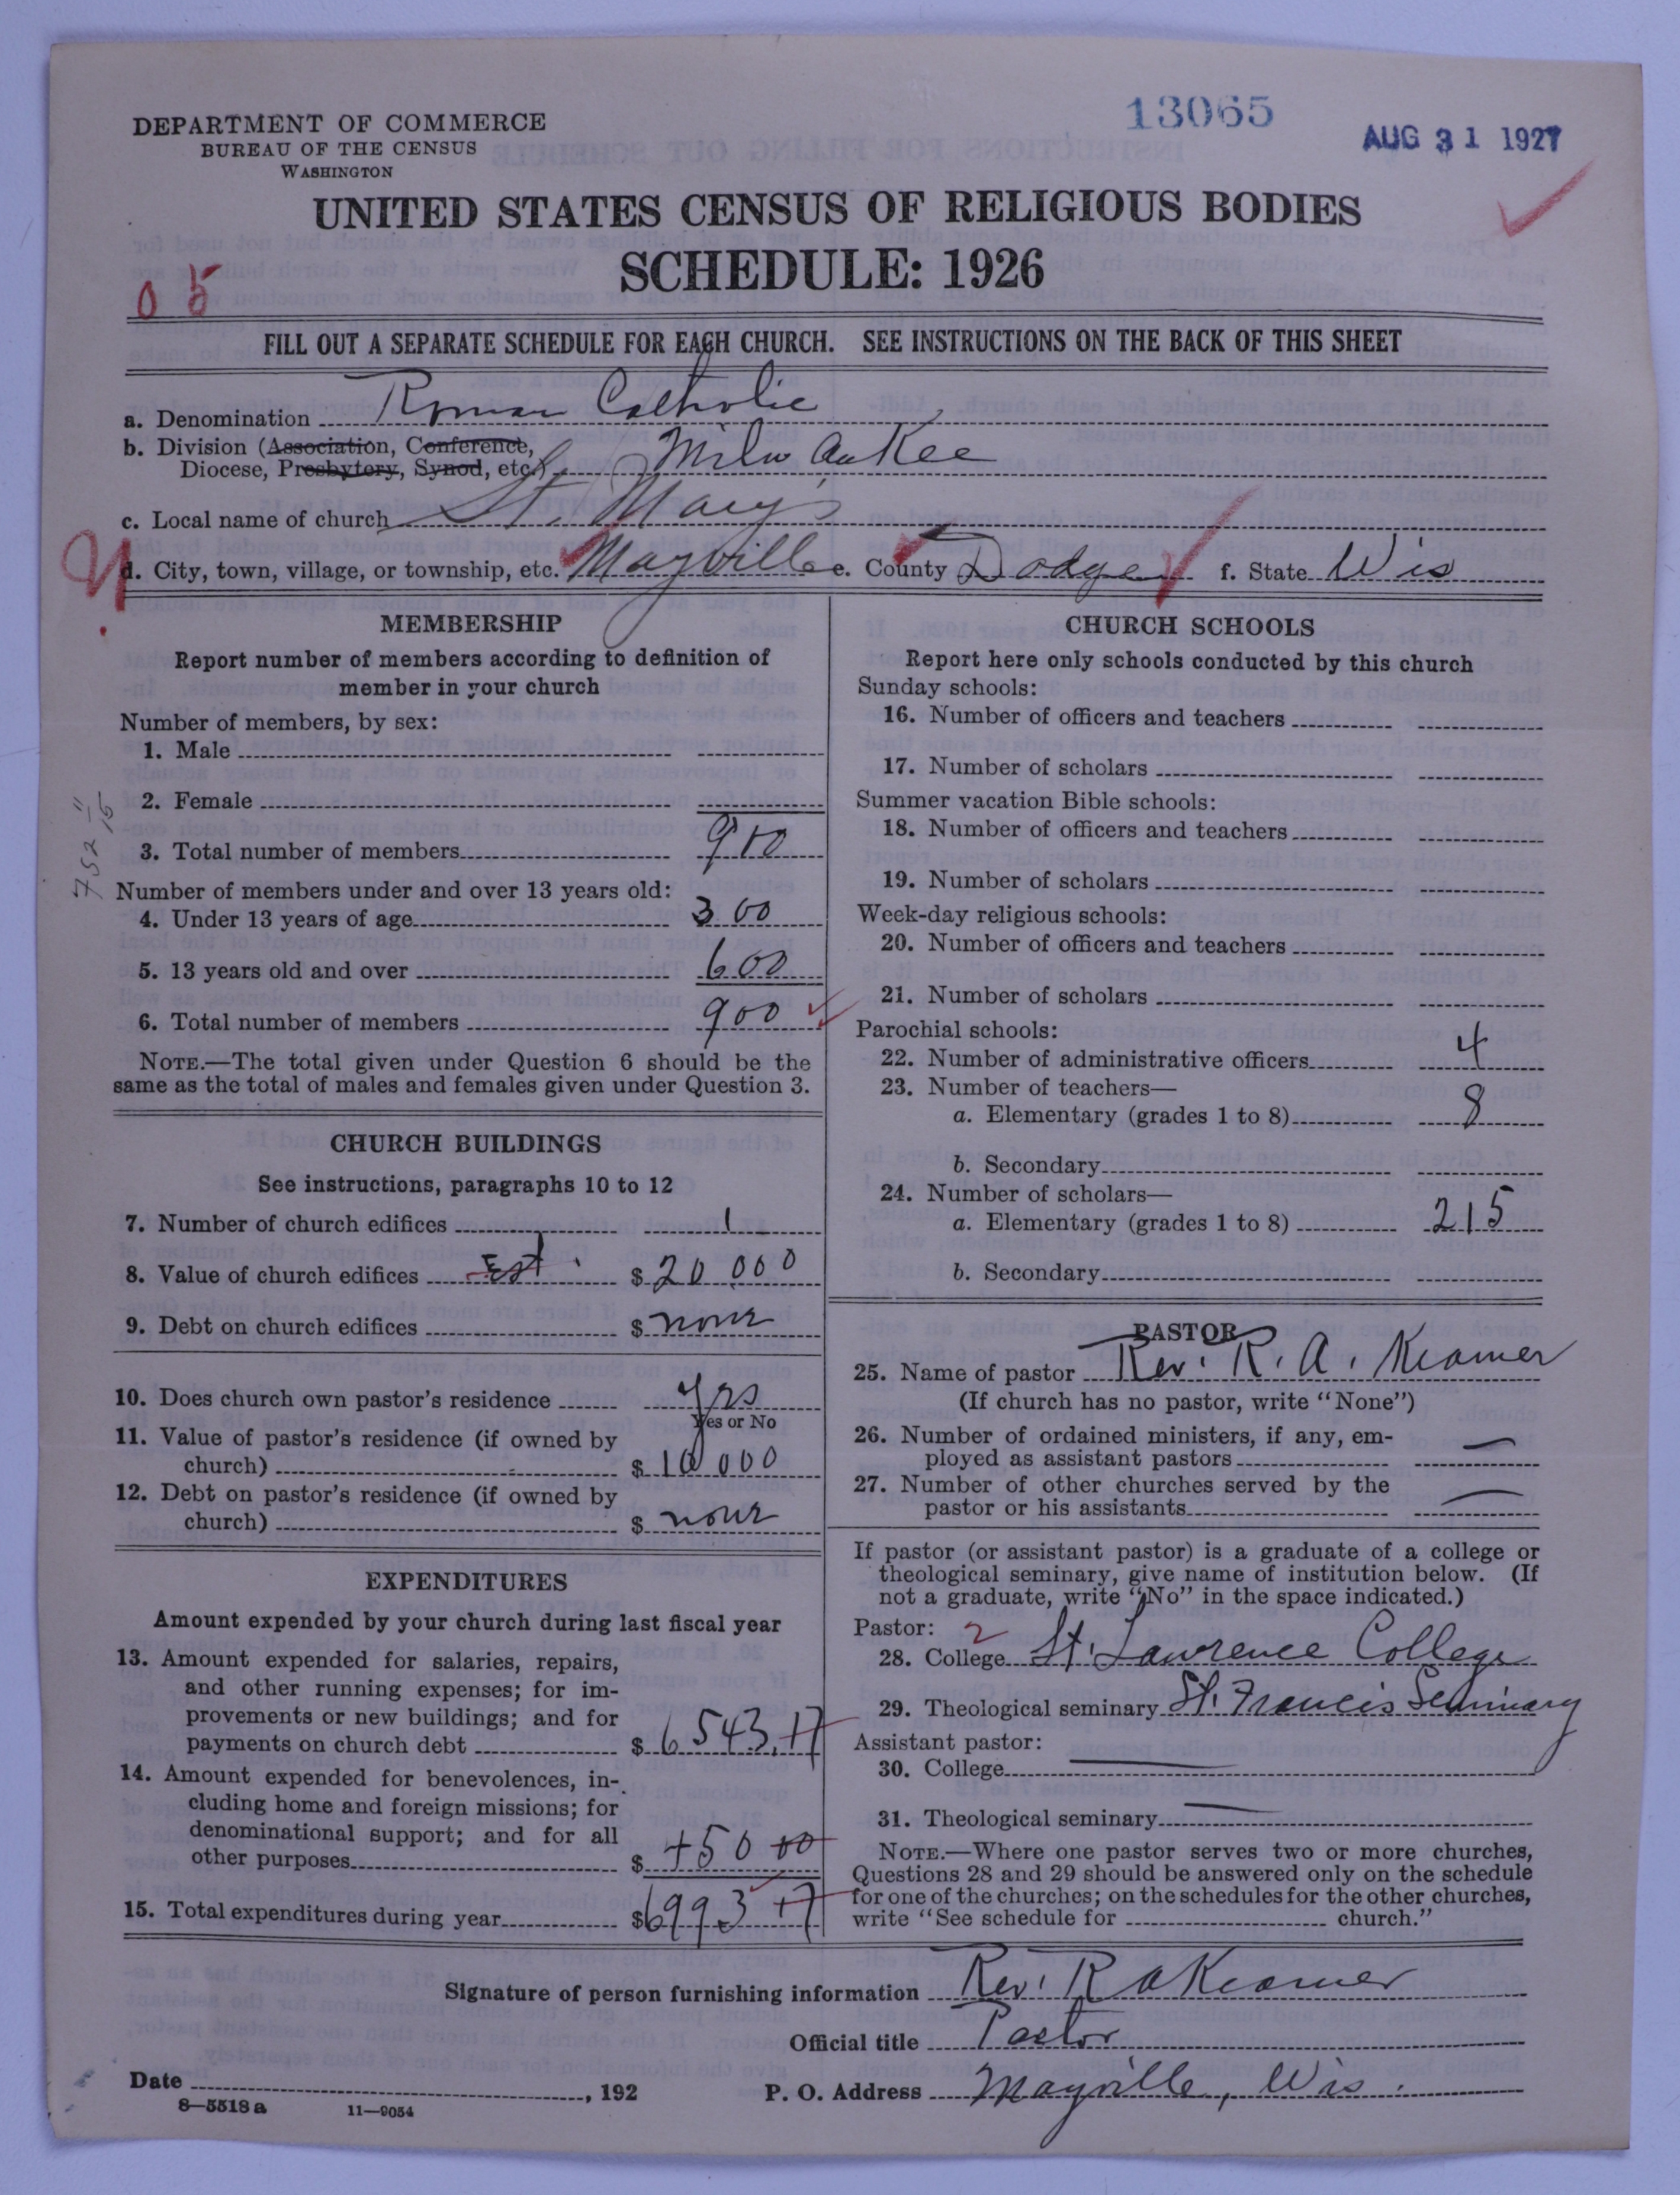 DEPARTMENT OF COMMERCE
BUREAU OF THE CENSUS
WASHINGTON
13065
AUG 31 1927
UNITED STATES CENSUS OF RELIGIOUS BODIES
SCHEDULE: 1926
05
FILL OUT A SEPARATE SCHEDULE FOR EACH CHURCH. SEE INSTRUCTIONS ON THE BACK OF THIS SHEET
a. Denomination Roman Catholic
b. Division (Association, Conference,
Diocese, Presbytery, Synod, etc.) Milwaukee
c. Local name of church St. Mary's
d. City, town, village, or township, etc. Mayville e. County Dodge f. State Wis
MEMBERSHIP
Report number of members according to definition of
member in your church
Number of members, by sex:
1. Male
2. Female
3. Total number of members 900
Number of members under and over 13 years old:
4. Under 13 years of age 300
5. 13 years old and over 600
6. Total number of members 900
NOTE.—The total given under Question 6 should be the
same as the total of males and females given under Question 3.
CHURCH BUILDINGS
See instructions, paragraphs 10 to 12
7. Number of church edifices 1
8. Value of church edifices Est. $ 20 000
9. Debt on church edifices $ none
10. Does church own pastor's residence yes
Yes or No
11. Value of pastor's residence (if owned by
church) $ 10 000
12. Debt on pastor's residence (if owned by
church) $ none
EXPENDITURES
Amount expended by your church during last fiscal year
13. Amount expended for salaries, repairs,
and other running expenses; for im-
provements or new buildings; and for
payments on church debt $ 6543.17
14. Amount expended for benevolences, in-
cluding home and foreign missions; for
denominational support; and for all
other purposes $ 450 00
15. Total expenditures during year $ 6993 17
CHURCH SCHOOLS
Report here only schools conducted by this church
Sunday schools:
16. Number of officers and teachers
17. Number of scholars
Summer vacation Bible schools:
18. Number of officers and teachers
19. Number of scholars
Week-day religious schools:
20. Number of officers and teachers
21. Number of scholars
Parochial schools:
22. Number of administrative officers 4
23. Number of teachers—
a. Elementary (grades 1 to 8) 8
b. Secondary
24. Number of scholars—
a. Elementary (grades 1 to 8) 215
b. Secondary
PASTOR
25. Name of pastor Rev. R. A. Kramer
(If church has no pastor, write "None")
26. Number of ordained ministers, if any, em-
ployed as assistant pastors —
27. Number of other churches served by the
pastor or his assistants —
If pastor (or assistant pastor) is a graduate of a college or
theological seminary, give name of institution below. (If
not a graduate, write "No" in the space indicated.)
Pastor: 2
28. College St. Lawrence College
29. Theological seminary St. Francis Seminary
Assistant pastor:
30. College —
31. Theological seminary —
NOTE.—Where one pastor serves two or more churches,
Questions 28 and 29 should be answered only on the schedule
for one of the churches; on the schedules for the other churches,
write "See schedule for church."
Signature of person furnishing information Rev. R A Kramer
Official title Pastor
Date , 192 P. O. Address Mayville, Wis.
8—5518a 11—9054